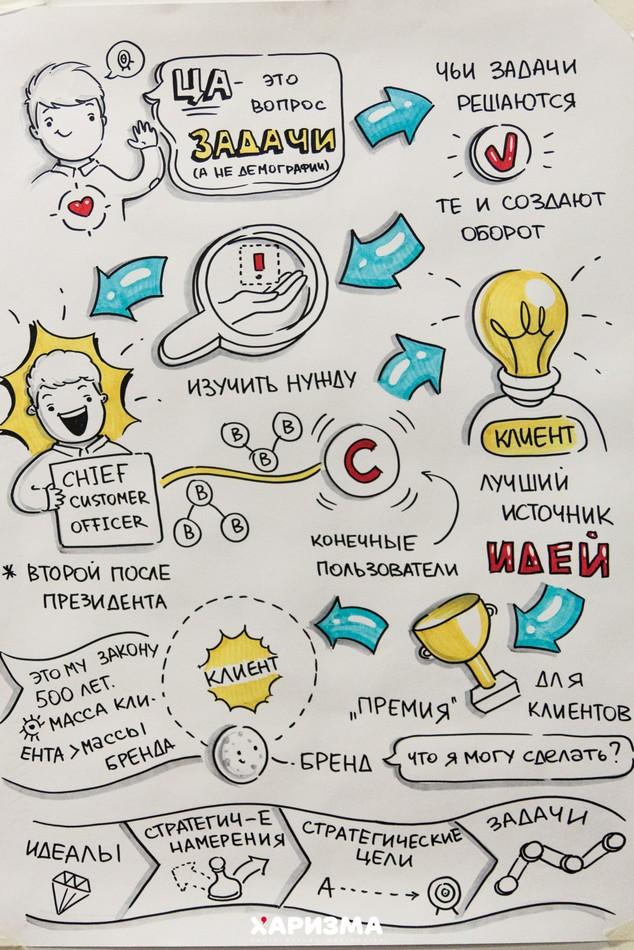 ЦА - ЭТО
ВОПРОС
ЗАДАЧИ
(А НЕ ДЕМОГРАФИИ)
ЧЬИ ЗАДАЧИ
РЕШАЮТСЯ
ТЕ И СОЗДАЮТ
ОБОРОТ
!
ИЗУЧИТЬ НУЖДУ
КЛИЕНТ
ЛУЧШИЙ
ИСТОЧНИК
ИДЕЙ
CHIEF
CUSTOMER
OFFICER
* ВТОРОЙ ПОСЛЕ
ПРЕЗИДЕНТА
B B
B
B
B B
C
КОНЕЧНЫЕ
ПОЛЬЗОВАТЕЛИ
„ПРЕМИЯ"
ДЛЯ
КЛИЕНТОВ
КЛИЕНТ
ЭТО МУ ЗАКОНУ
500 ЛЕТ.
МАССА КЛИ-
ЕНТА > МАССЫ
БРЕНДА
БРЕНД
ЧТО Я МОГУ СДЕЛАТЬ?
ИДЕАЛЫ
СТРАТЕГИЧ-Е
НАМЕРЕНИЯ
СТРАТЕГИЧЕСКИЕ
ЦЕЛИ
A
ЗАДАЧИ
ХАРИЗМА